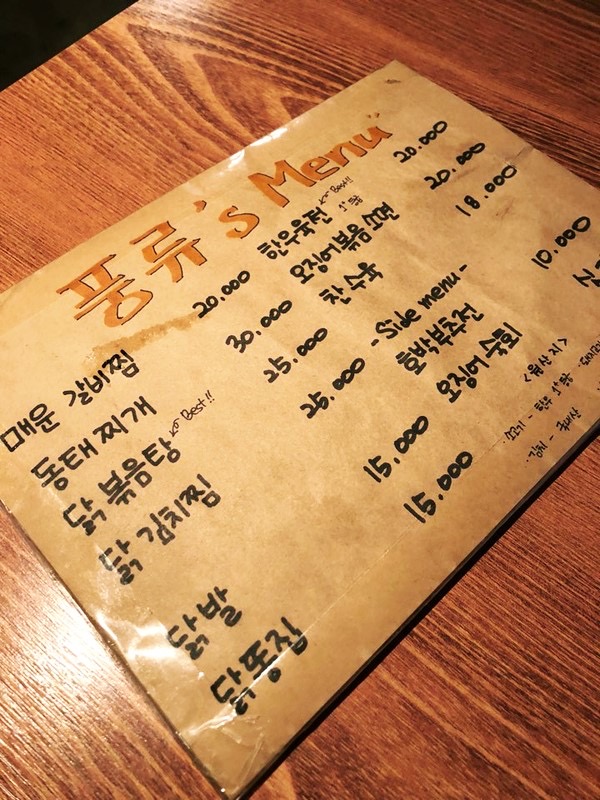 풍류's Menu
매운 갈비찜 20.000
동태찌개 30.000
닭볶음탕 Best!! 25.000
닭 김치찜 25.000
닭발 15.000
닭똥집 15.000
한우육전 Best!! 20.000
오징어볶음 20.000
찬 수육 18.000
- Side menu -
호박부추전 10.000
오징어 숙회
<원산지>
·소고기 - 한우
·김치 - 국내산